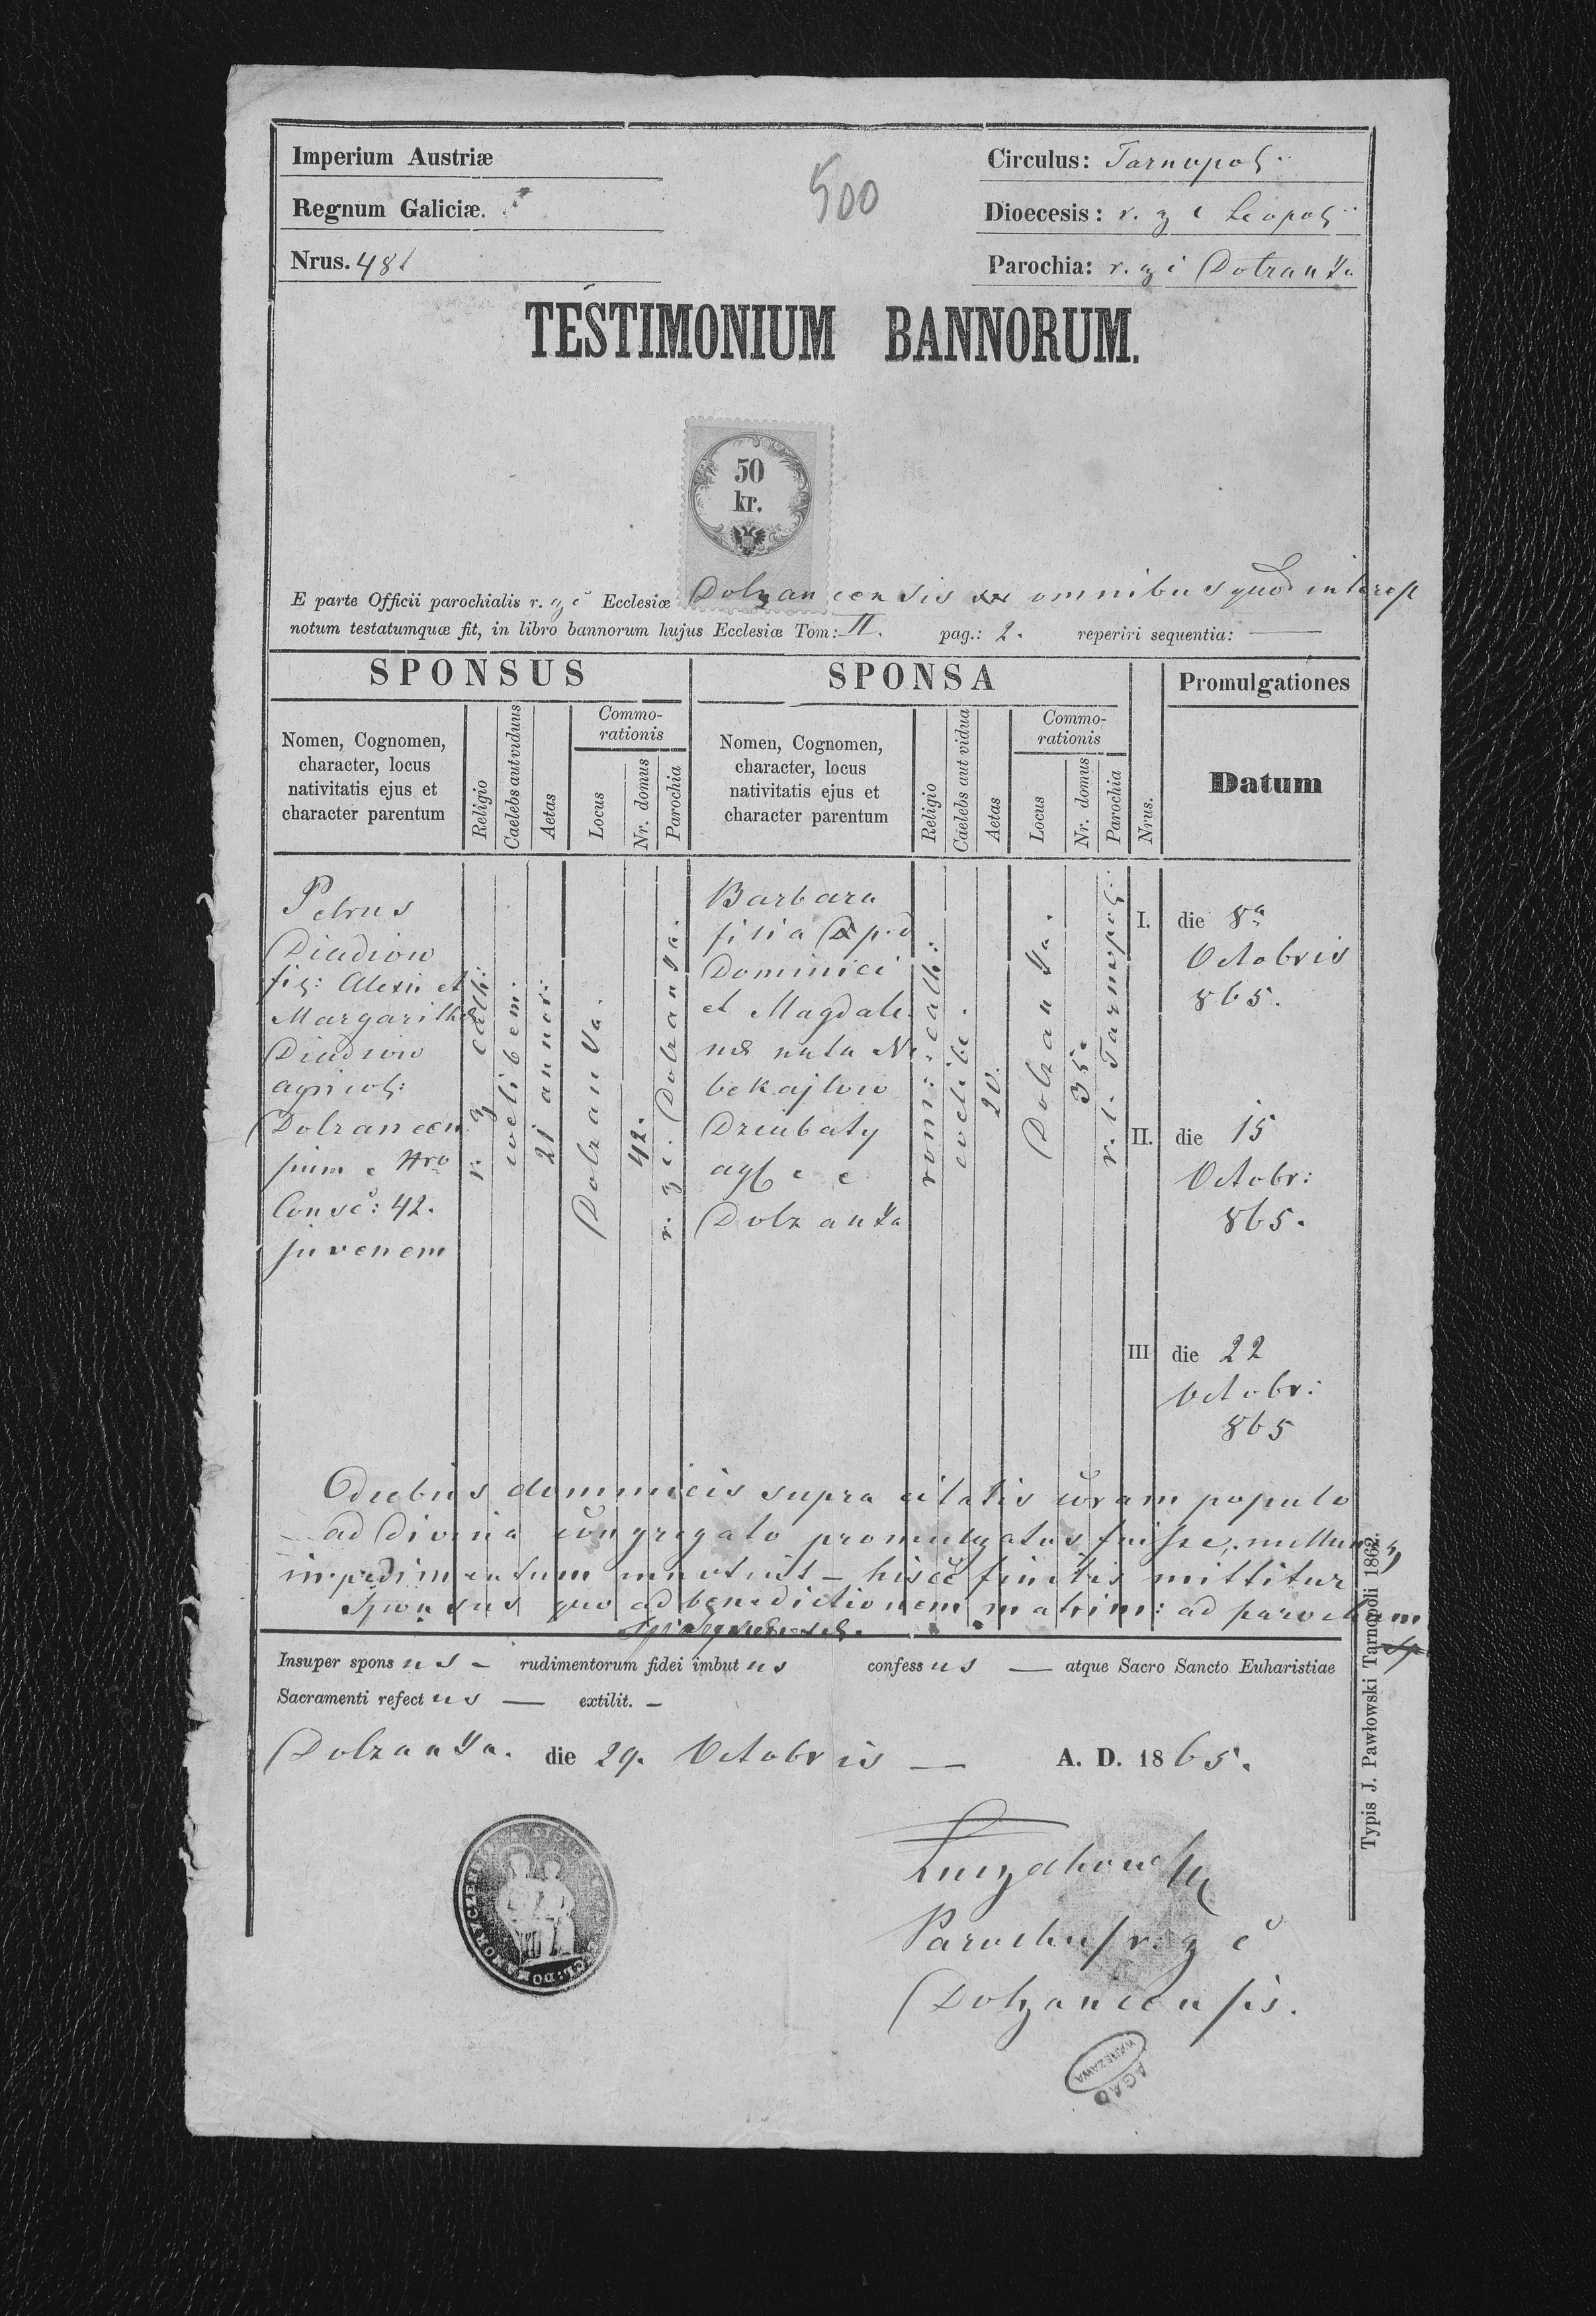 Imperium Austriæ
Regnum Galiciæ.
Nrus. 481
500
Circulus: Tarnopol:
Dioecesis: r. g c Leopol:
Parochia: r. g c Dolzanka
TESTIMONIUM BANNORUM.
50
kr.
E parte Officii parochialis r. g c Ecclesiæ Dolzancensis omnibus quod interest
notum testatumquæ fit, in libro bannorum hujus Ecclesiæ Tom: II. pag.: 2. reperiri sequentia: —
SPONSUS
SPONSA
Promulgationes
Nomen, Cognomen,
character, locus
nativitatis ejus et
character parentum
Religio
Caelebs aut viduus
Aetas
Commo-
rationis
Locus
Nr. domus
Parochia
Nomen, Cognomen,
character, locus
nativitatis ejus et
character parentum
Religio
Caelebs aut vidua
Aetas
Commo-
rationis
Locus
Nr. domus
Parochia
Nrus.
Datum
Petrus
Diadiow
fil: Alexii et
Margarithæ
Diadiow
agricol:
Dolzancen
sium e Nro
Consc: 42.
juvenem
r. g cath:
coelibem:
21 annor:
Dolzanka.
42.
r. g c. Dolzanka.
Barbara
filia
Dominici
et Magdale
næ nata
Dziubaty
Dolzanka
rom: cath:
coelibe.
20.
Dolzanka.
35.
r. l. Tarnopol:
I. die 8a
Octobris
865.
II. die 15
Octobr:
865.
III die 22
Octobr:
865
Diebus dominicis supra citatis coram populo
ad divina congregato promulgatos fuisse, nullumq
impedimentum innotuit – hisce finitis mittitur
Sponsus quo ad benedictionem matrim: ad parochum
Insuper sponsus – rudimentorum fidei imbutus confessus — atque Sacro Sancto Euharistiae
Sacramenti refectus — extilit. –
Dolzanka. die 29. Octobris — A. D. 1865.
Parochus r. g c
Dolzancensis.
AGAD
WARSZAWA
Typis J. Pawłowski Tarnopoli 1862.